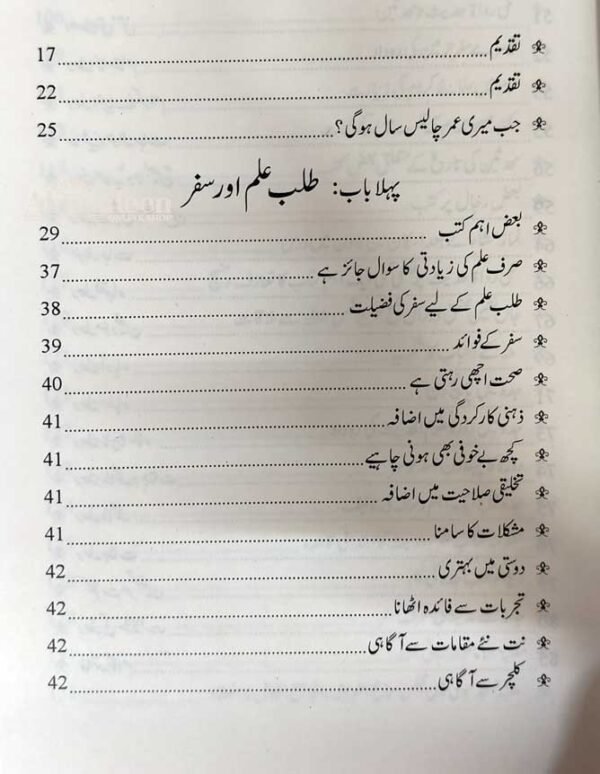 تقدیم 17
تقدیم 22
جب میری عمر چالیس سال ہوگی؟ 25
پہلا باب: طلب علم اور سفر
بعض اہم کتب 29
صرف علم کی زیادتی کا سوال جائز ہے 37
طلب علم کے لیے سفر کی فضیلت 38
سفر کے فوائد 39
صحت اچھی رہتی ہے 40
ذہنی کارکردگی میں اضافہ 41
کچھ بے خوفی بھی ہونی چاہیے 41
تخلیقی صلاحیت میں اضافہ 41
مشکلات کا سامنا 41
دوستی میں بہتری 42
تجربات سے فائدہ اٹھانا 42
نت نئے مقامات سے آگاہی 42
کلچر سے آگاہی 42